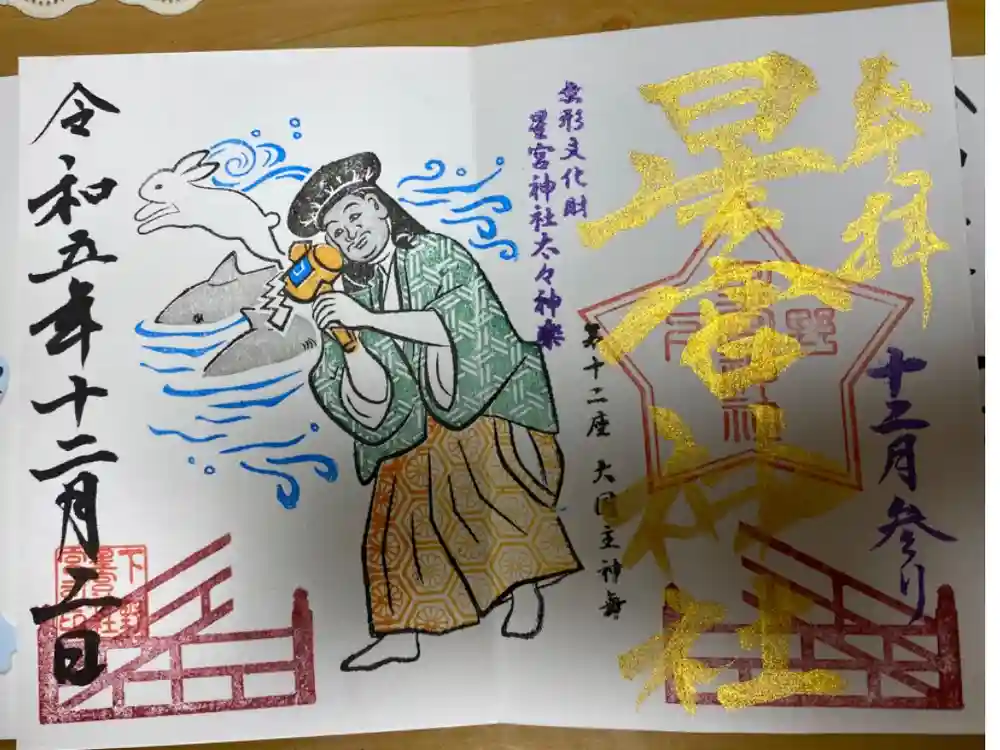 奉拝
十二月参り
星宮神社
無形文化財
星宮神社太々神楽
第十二座 大国主神舞
令和五年十二月二日